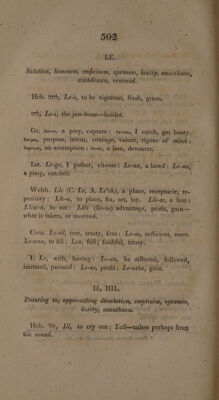 502
LE.
Solution, looseness, emptiness, openness, laxity, smoothness,
withdrawn, removed.
Heb. Le-e, to be vigorous, fresh, green.
Le-i, the jaw-bone—holder.
Gr. a prey, capture: I catch, get booty.
purpose, intent, courage, valour, rigour of mind:
an assumption: a devourer.
Lat. Le-go, I gather, choose: Le-no, a bawd: Le-no,
a pimp, catcher.
Welsh. Lle (C. Le, A. Le'ch), a place, receptacle, re-
pository: Lle-u, to place, fix, set, lay. Lle-w, a lion:
Lle-wa, to eat: Lles (lle-as) advantage, profit, gain—
what is taken, or received.
Corn. Le-al, true, trusty, firm: Le-as, sufficient, meet.
Le-nus, to fill: Len, full; faithful, trusty.
I. Le, with, having: Le-an, he adhered, followed,
imitated, pursued: Le-as, profit: Le-atha, gain.
II, HII.
Pointing to, approaching dissolution, emptiness, openness,
laxity, smoothness.
Heb. Ill, to cry out; Yell—unless perhaps from
the sound.